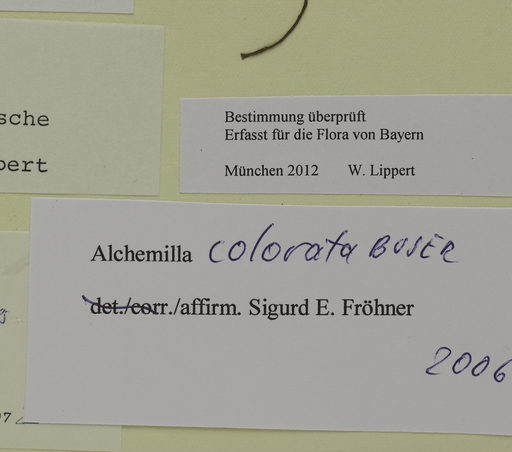 sche
pert
Bestimmung überprüft
Erfasst für die Flora von Bayern
München 2012 W. Lippert
Alchemilla colorata BUSER
det./corr./affirm. Sigurd E. Fröhner
2006
97